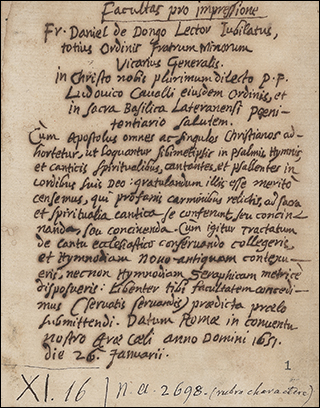 Facultas pro impressione
Fr. Daniel de Dongo Lector Jubilatus,
totius Ordinis Fratrum Minorum
Vicarius Generalis.
in Christo nobis plurimum dilecto P. F.
Ludovico Cavalli eiusdem Ordinis, et
in Sacra Basilica Lateranensi Pœni-
tentiario salutem.
Cùm Apostolus omnes ac singulos Christianos ad-
hortetur, ut loquantur sibimetipsis in psalmis, Hymnis,
et canticis Spiritualibus, cantantes, et psallentes in
cordibus suis Deo: gratulandum illis esse meritò
censemus, qui profanis carminibus relictis, ad sacra
et Spiritualia cantica se conferunt, seu concin-
nanda, seu concinenda. Cùm igitur tractatum
de Cantu ecclesiastico conservando collegeris,
et Hymnodiam novo-antiquam contexu-
eris, necnon Hymnodiam Seraphicam metricè
disposueris: Libenter tibi facultatem concedi-
mus (servatis servandis) prædicta prælo
submittendi. Datum Romæ in conventu
nostro Aræ Cœli anno Domini 1651.
die 26 Januarii.
1
XI. 16 | n. a. 2698. (rubro charactere)